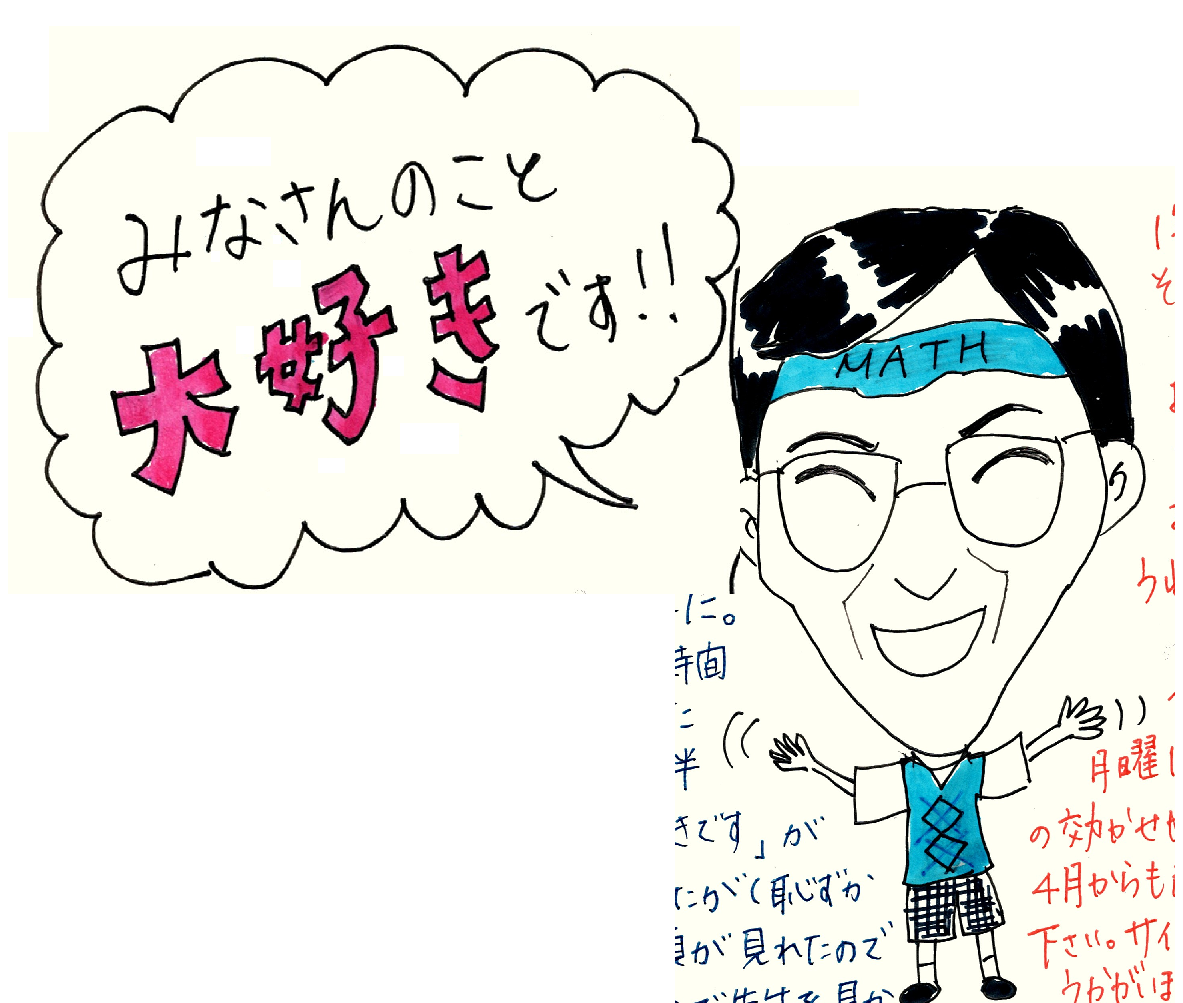 みなさんのこと
大好きです!!
MATH
に。
時間
に
半
きです」が
たがく恥ずか
が見れたので
に
そ
うれ
月曜
の効かせ
4月からも
下さい。サイ
うかがいほ